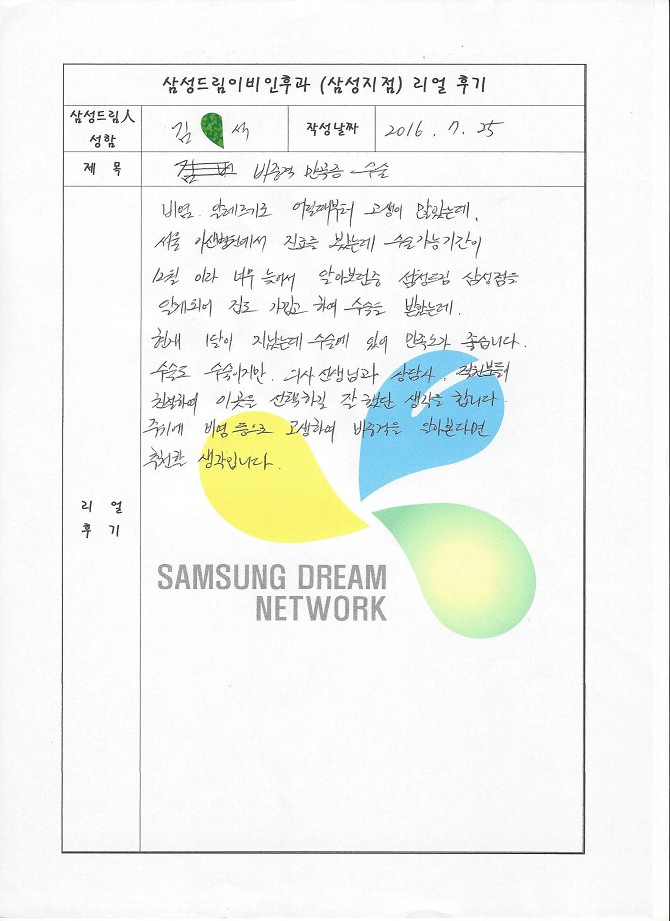 삼성드림이비인후과 (삼성지점) 리얼 후기
삼성드림人
성함
김 석
작성날짜
2016. 7. 25
제 목
비중격 만곡증 수술
비염. 알레르기로 어릴때부터 고생이 많았는데,
서울 아산병원에서 진료를 봤는데 수술가능기간이
12월 이라 너무 늦어서 알아보던중 삼성드림 삼성점을
알게되어 집도 가깝고 하여 수술을 받았는데.
현재 1달이 지났는데 수술에 있어 만족도가 좋습니다.
수술도 수술이지만, 의사선생님과 상담사, 직원분들이
친절하여 이곳을 선택하길 잘 했단 생각을 합니다.
주위에 비염 등으로 고생하여 비중격을 알아본다면
추천할 생각입니다.
리 얼
후 기
SAMSUNG DREAM
NETWORK